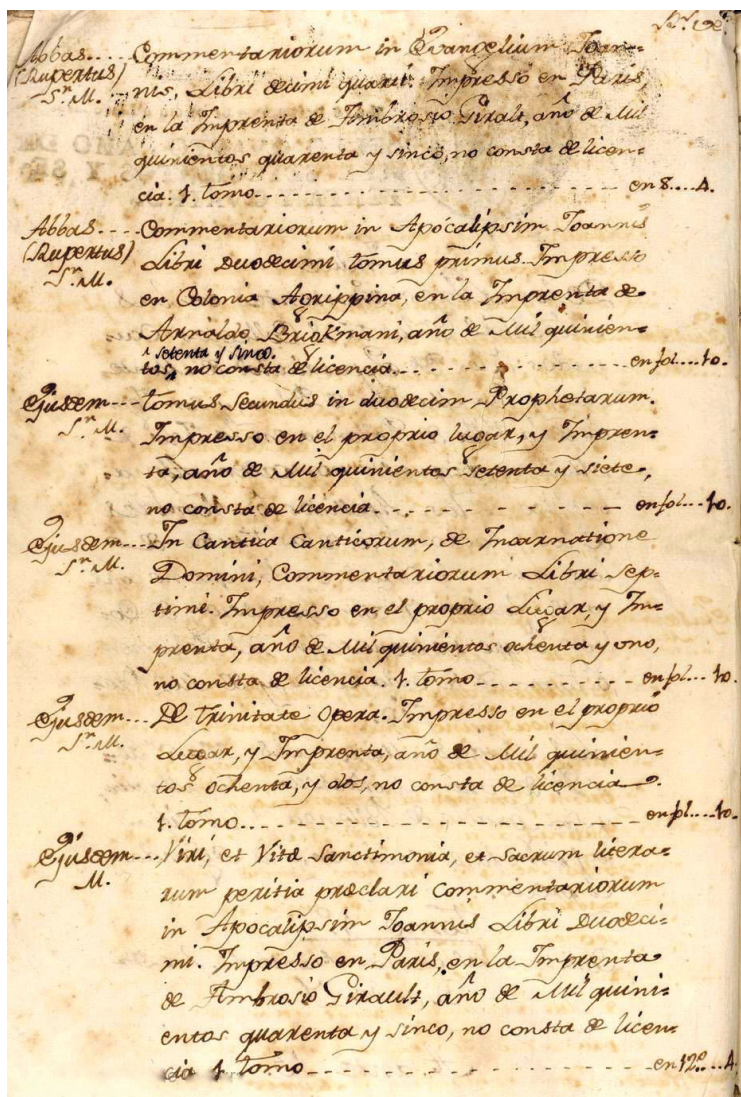 Abbas.... Commentariorum in Evangelium Ioan=
(Rupertus) nis, Libri decimi quarti. Impresso en Paris,
Sn. M. en la Imprenta de Ambrosio Giralt, año de Mil
quinientos quarenta y sinco, no consta de licen=
cia. 1. tomo - - - en 8.... 4.
Abbas.... Commentariorum in Apócalipsim Ioannis
(Rupertus) Libri Duodecimi, tomus primus. Impresso
Sn. M. en Colonia Agrippina, en la Imprenta de
Arnaldo Briokmani, año de Mil quinien=
^ setenta y sinco.
tos, no consta de licencia. - - - en fol... 10.
Ejusdem--- tomus Secundus in duodecim Prophetarum.
Sn. M. Impresso en el proprio lugar, y Impren=
ta, año de Mil quinientos setenta y siete,
no consta de licencia. - - - en fol... 10.
Ejusdem... In Cantica Canticorum, de Incarnatione
Sn. M. Domini, Commentariorum Libri sep=
timi. Impresso en el proprio Lugar, y Im=
prenta, año de Mil quinientos ochenta y uno,
no consta de licencia. 1. tomo - - - en fol... 10.
Ejusdem... De Trinitate Opera. Impresso en el proprio
Sn. M. Lugar, y Imprenta, año de Mil quinien=
tos ochenta, y dos, no consta de licencia.
1. tomo. - - - en fol.... 10.
Ejusdem... Viri, et Vitæ Sanctimonia, et Sacrum litera=
M. rum peritia præclari Commentariorum
in Apocalipsim Ioannis Libri Duodeci=
mi. Impresso en Paris, en la Imprenta
de Ambrosio Girault, año de Mil quini=
entos quarenta y sinco, no consta de licen=
cia 1. tomo - - - en 12º... 4.